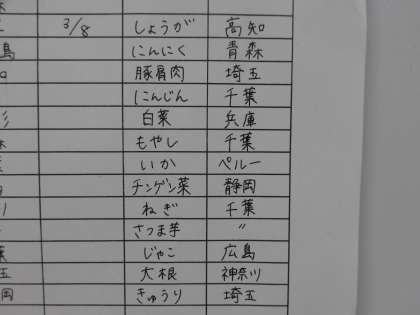 3/8 しょうが 高知
島 にんにく 青森
豚肩肉 埼玉
にんじん 千葉
白菜 兵庫
もやし 千葉
いか ペルー
チンゲン菜 静岡
ねぎ 千葉
さつま芋 〃
葉 じゃこ 広島
玉 大根 神奈川
岡 きゅうり 埼玉